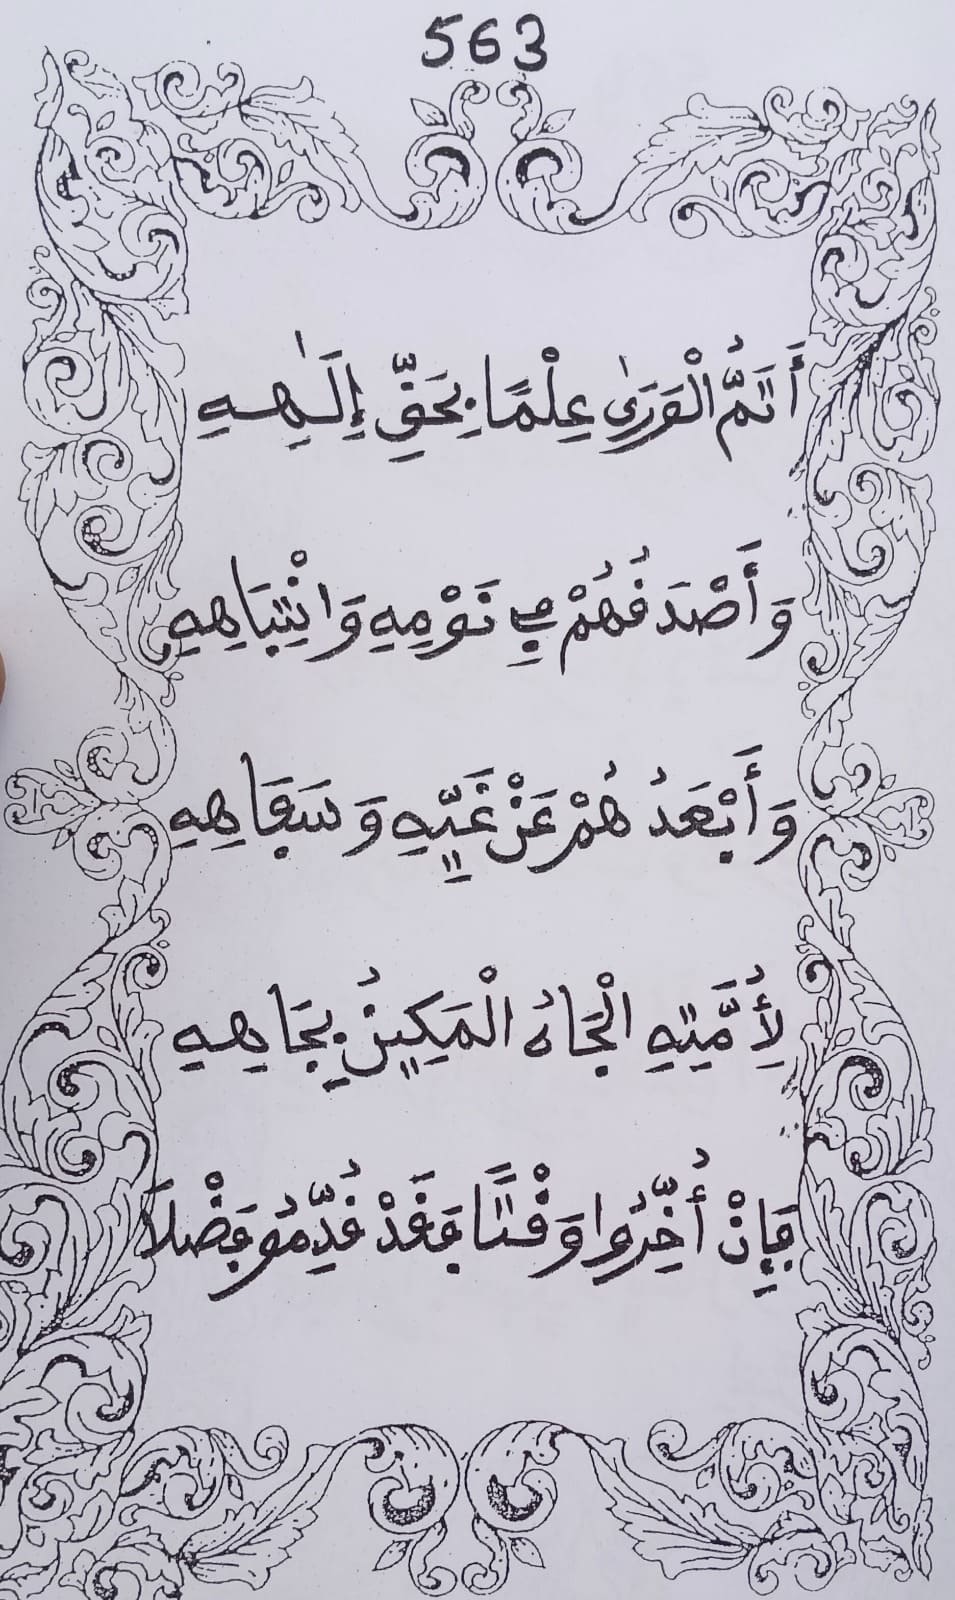 563
أَتَمُّ الْوَرَىٰ عِلْمًا بِحَقِّ إِلَٰهِهِ
وَأَصْدَقُهُمْ فِي نَوْمِهِ وَانْتِبَاهِهِ
وَأَبْعَدُهُمْ عَنْ غَيِّهِ وَسَفَاهِهِ
لِأُمَّتِهِ الْجَاهُ الْمَكِينُ بِجَاهِهِ
فَإِنْ أُخِّرُوا وَقْتًا فَقَدْ قُدِّمُو فَضْلَا